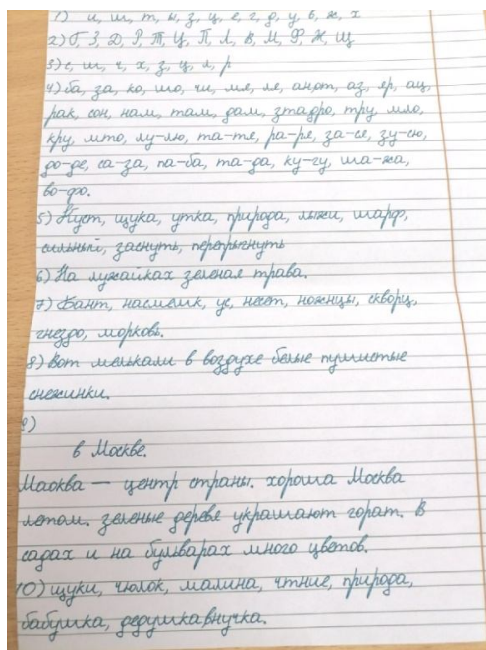 1) и, ш, т, ы, з, ц, е, г, д, у, б, ж, х
2) Г, З, Д, Р, Т, Ц, П, Л, В, М, Ф, Ж, Щ
3) с, ш, ч, х, з, ц, л, р
4) ба, за, ко, шо, чи, мя, ле, анот, аз, яр, ац,
рак, сон, нам, там, дам, зтадро, тру, мло,
кру, мто, лу-лю, та-тя, ра-ря, за-се, зу-сю,
до-де, са-за, па-ба, та-да, ку-гу, ша-жа,
во-фо.
5) Куст, щука, утка, природа, лыжи, шарф,
сильный, заснуть, перепрыгнуть
6) На лужайках зеленая трава.
7) Бант, насмешк, ус, несет, ножнцы, скворц,
гнездо, морковь.
8) Вот мелькали в воздухе белые пушистые
снежинки.
9)
в Москве.
Маоква — центр страны. хороша Москва
летом. зеленые деревя украшают горат. В
садах и на бульварах много цветов.
10) щуки, чюлок, малина, чтние, природа,
бабушка, дедушка, внучка.